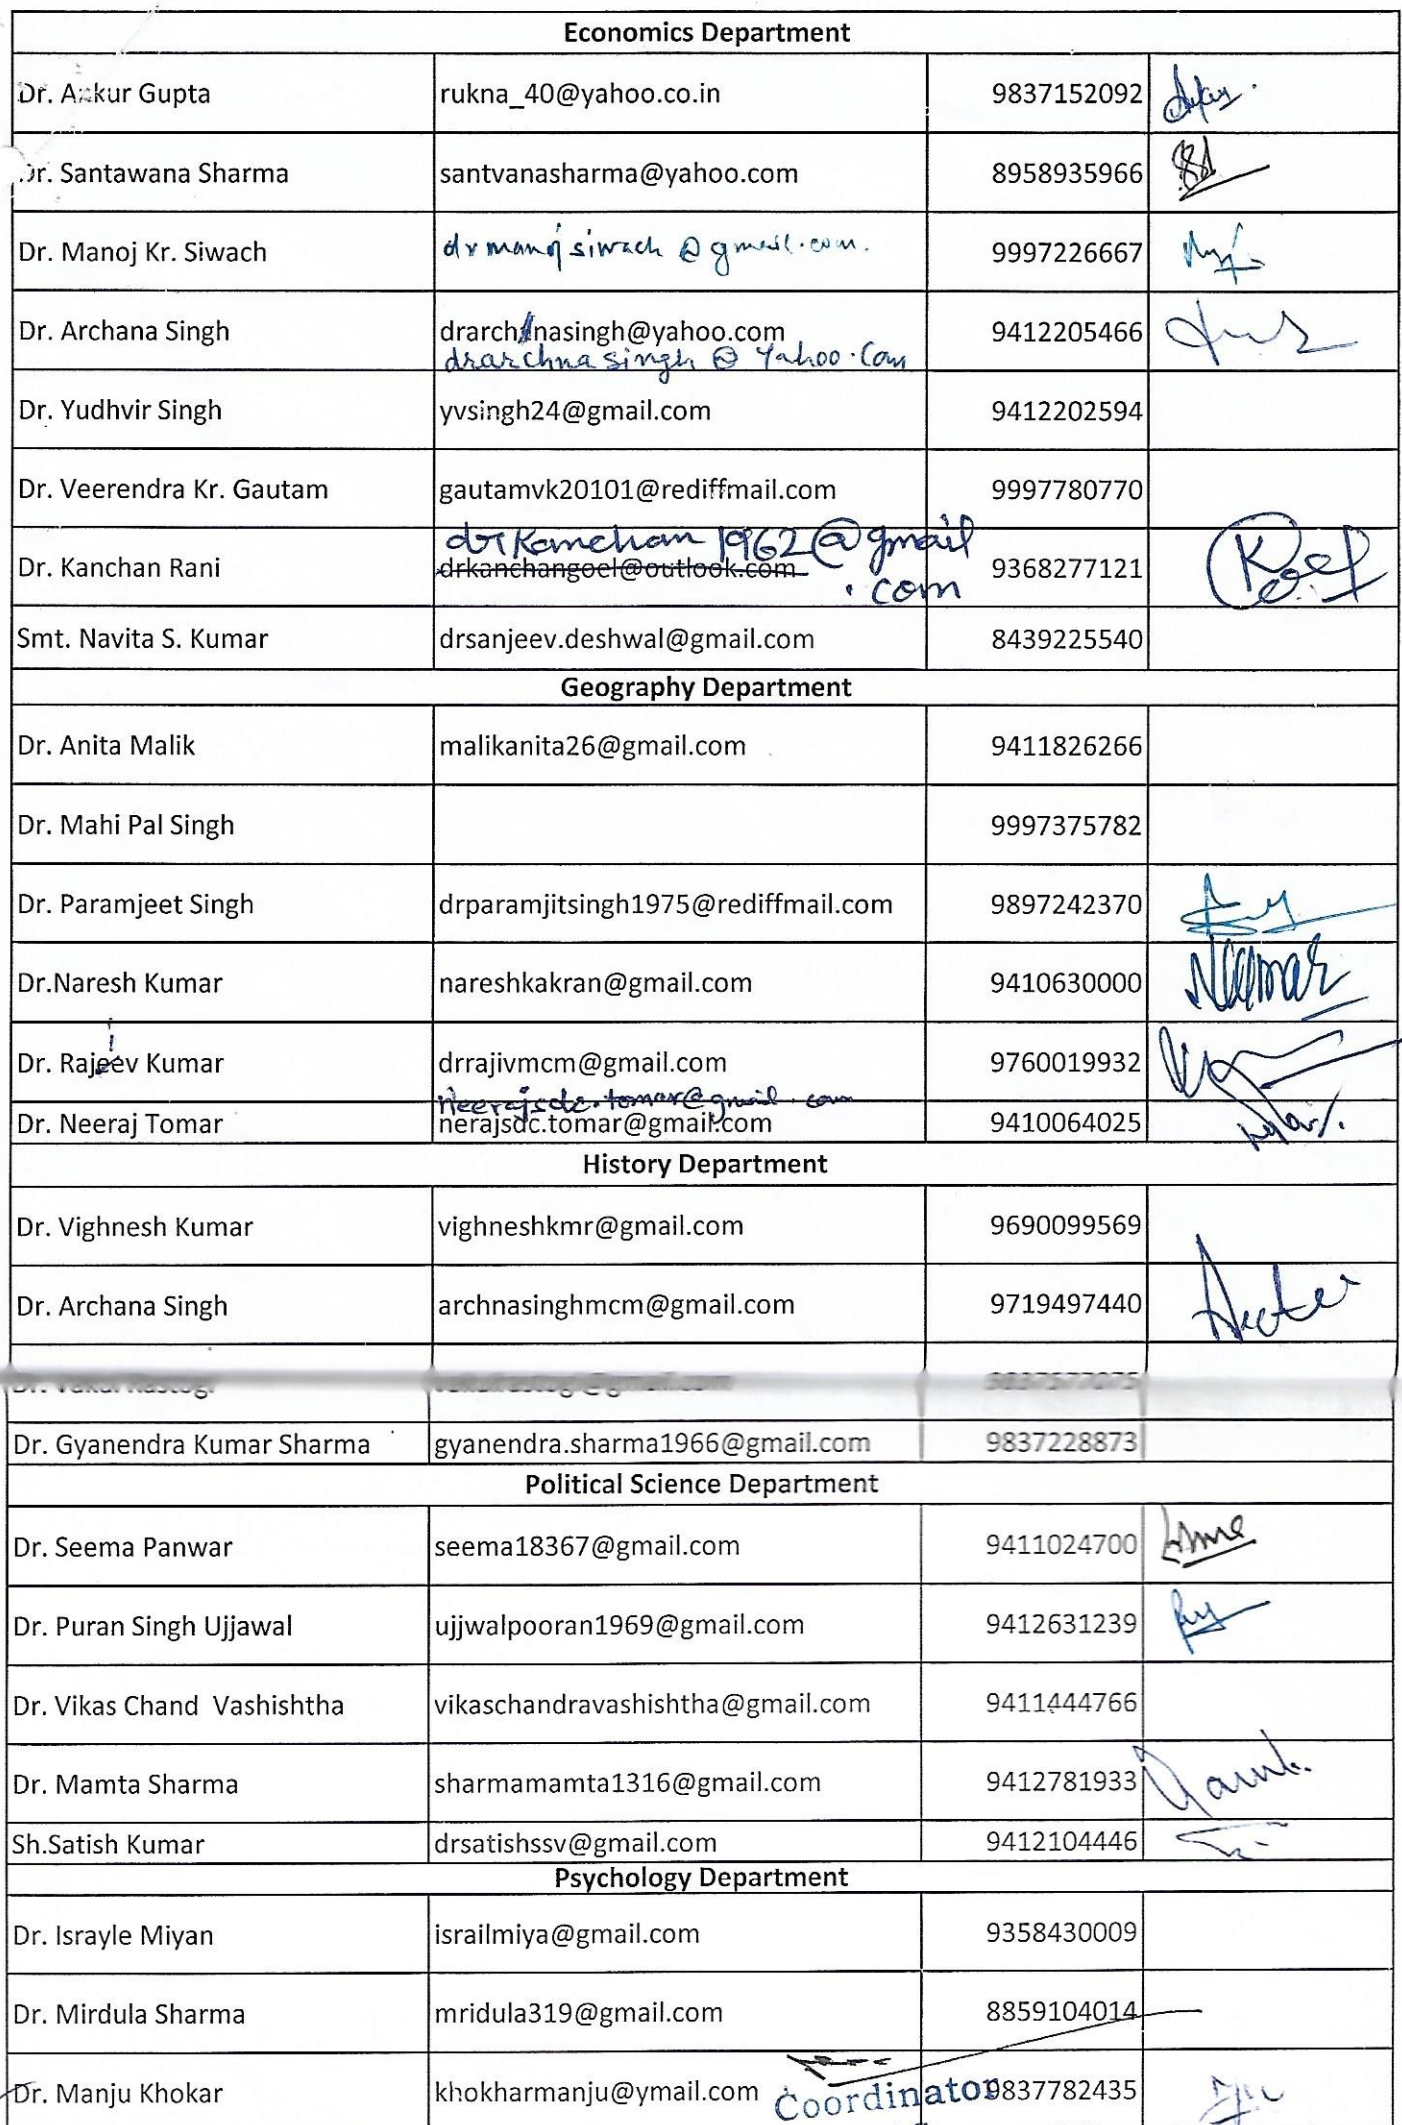 Economics Department
Dr. Ankur Gupta rukna_40@yahoo.co.in 9837152092
Dr. Santawana Sharma santvanasharma@yahoo.com 8958935966
Dr. Manoj Kr. Siwach drmanojsiwach@gmail.com. 9997226667
Dr. Archana Singh drarchnasingh@yahoo.com 9412205466
drarchnasingh@Yahoo.Com
Dr. Yudhvir Singh yvsingh24@gmail.com 9412202594
Dr. Veerendra Kr. Gautam gautamvk20101@rediffmail.com 9997780770
drkanchan1962@gmail
Dr. Kanchan Rani drkanchangoel@outlook.com 9368277121
.com
Smt. Navita S. Kumar drsanjeev.deshwal@gmail.com 8439225540
Geography Department
Dr. Anita Malik malikanita26@gmail.com 9411826266
Dr. Mahi Pal Singh 9997375782
Dr. Paramjeet Singh drparamjitsingh1975@rediffmail.com 9897242370
Dr.Naresh Kumar nareshkakran@gmail.com 9410630000
Dr. Rajeev Kumar drrajivmcm@gmail.com 9760019932
neerajsdc.tomar@gmail.com
Dr. Neeraj Tomar nerajsdc.tomar@gmail.com 9410064025
History Department
Dr. Vighnesh Kumar vighneshkmr@gmail.com 9690099569
Dr. Archana Singh archnasinghmcm@gmail.com 9719497440
Dr. Gyanendra Kumar Sharma gyanendra.sharma1966@gmail.com 9837228873
Political Science Department
Dr. Seema Panwar seema18367@gmail.com 9411024700
Dr. Puran Singh Ujjawal ujjwalpooran1969@gmail.com 9412631239
Dr. Vikas Chand Vashishtha vikaschandravashishtha@gmail.com 9411444766
Dr. Mamta Sharma sharmamamta1316@gmail.com 9412781933
Sh.Satish Kumar drsatishssv@gmail.com 9412104446
Psychology Department
Dr. Israyle Miyan israilmiya@gmail.com 9358430009
Dr. Mirdula Sharma mridula319@gmail.com 8859104014
Dr. Manju Khokar khokharmanju@ymail.com 9837782435
Coordinator